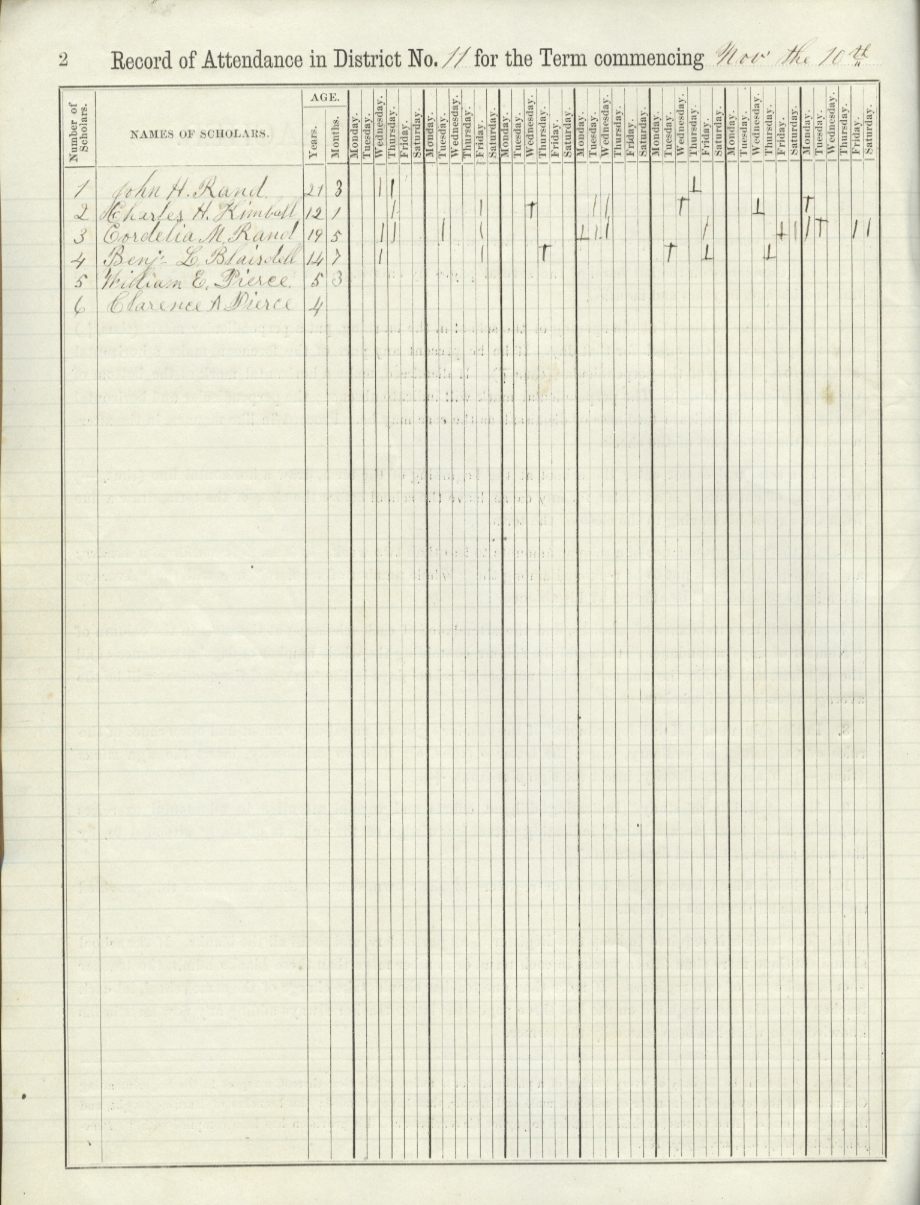 2 Record of Attendance in District No. 11 for the Term commencing Nov the 10th
Number of Scholars. NAMES OF SCHOLARS. AGE. Years. Months. Monday. Tuesday. Wednesday. Thursday. Friday. Saturday. Monday. Tuesday. Wednesday. Thursday. Friday. Saturday. Monday. Tuesday. Wednesday. Thursday. Friday. Saturday. Monday. Tuesday. Wednesday. Thursday. Friday. Saturday. Monday. Tuesday. Wednesday. Thursday. Friday. Saturday. Monday. Tuesday. Wednesday. Thursday. Friday. Saturday. Monday. Tuesday. Wednesday. Thursday. Friday. Saturday.
1 John H. Rand 21 3
2 Charles H. Kimball 12 1
3 Cordelia M. Rand 19 5
4 Benj- L Blaisdell 14 7
5 William E. Pierce. 5 3
6 Clarence A Pierce 4